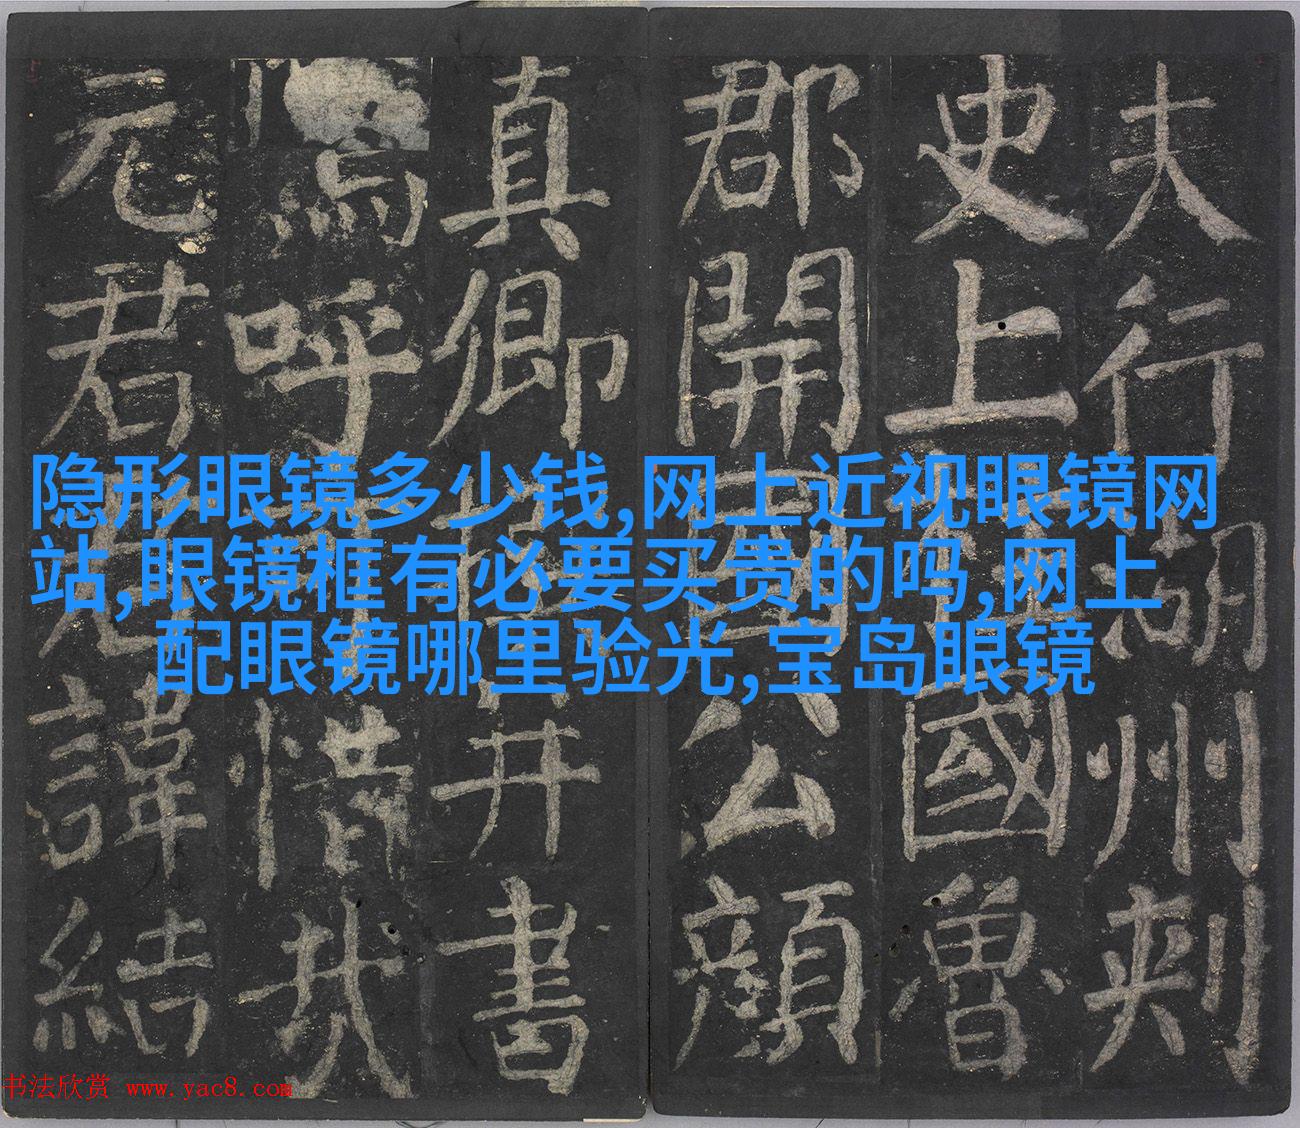 夫行湖州刺
史上國魯
郡開國公顏
真卿并書
嗚呼惜哉
元君諱結
隐形眼镜多少钱,网上近视眼镜网
站,眼镜框有必要买贵的吗,网上
配眼镜哪里验光,宝岛眼镜
书法欣赏 www.yac8.com